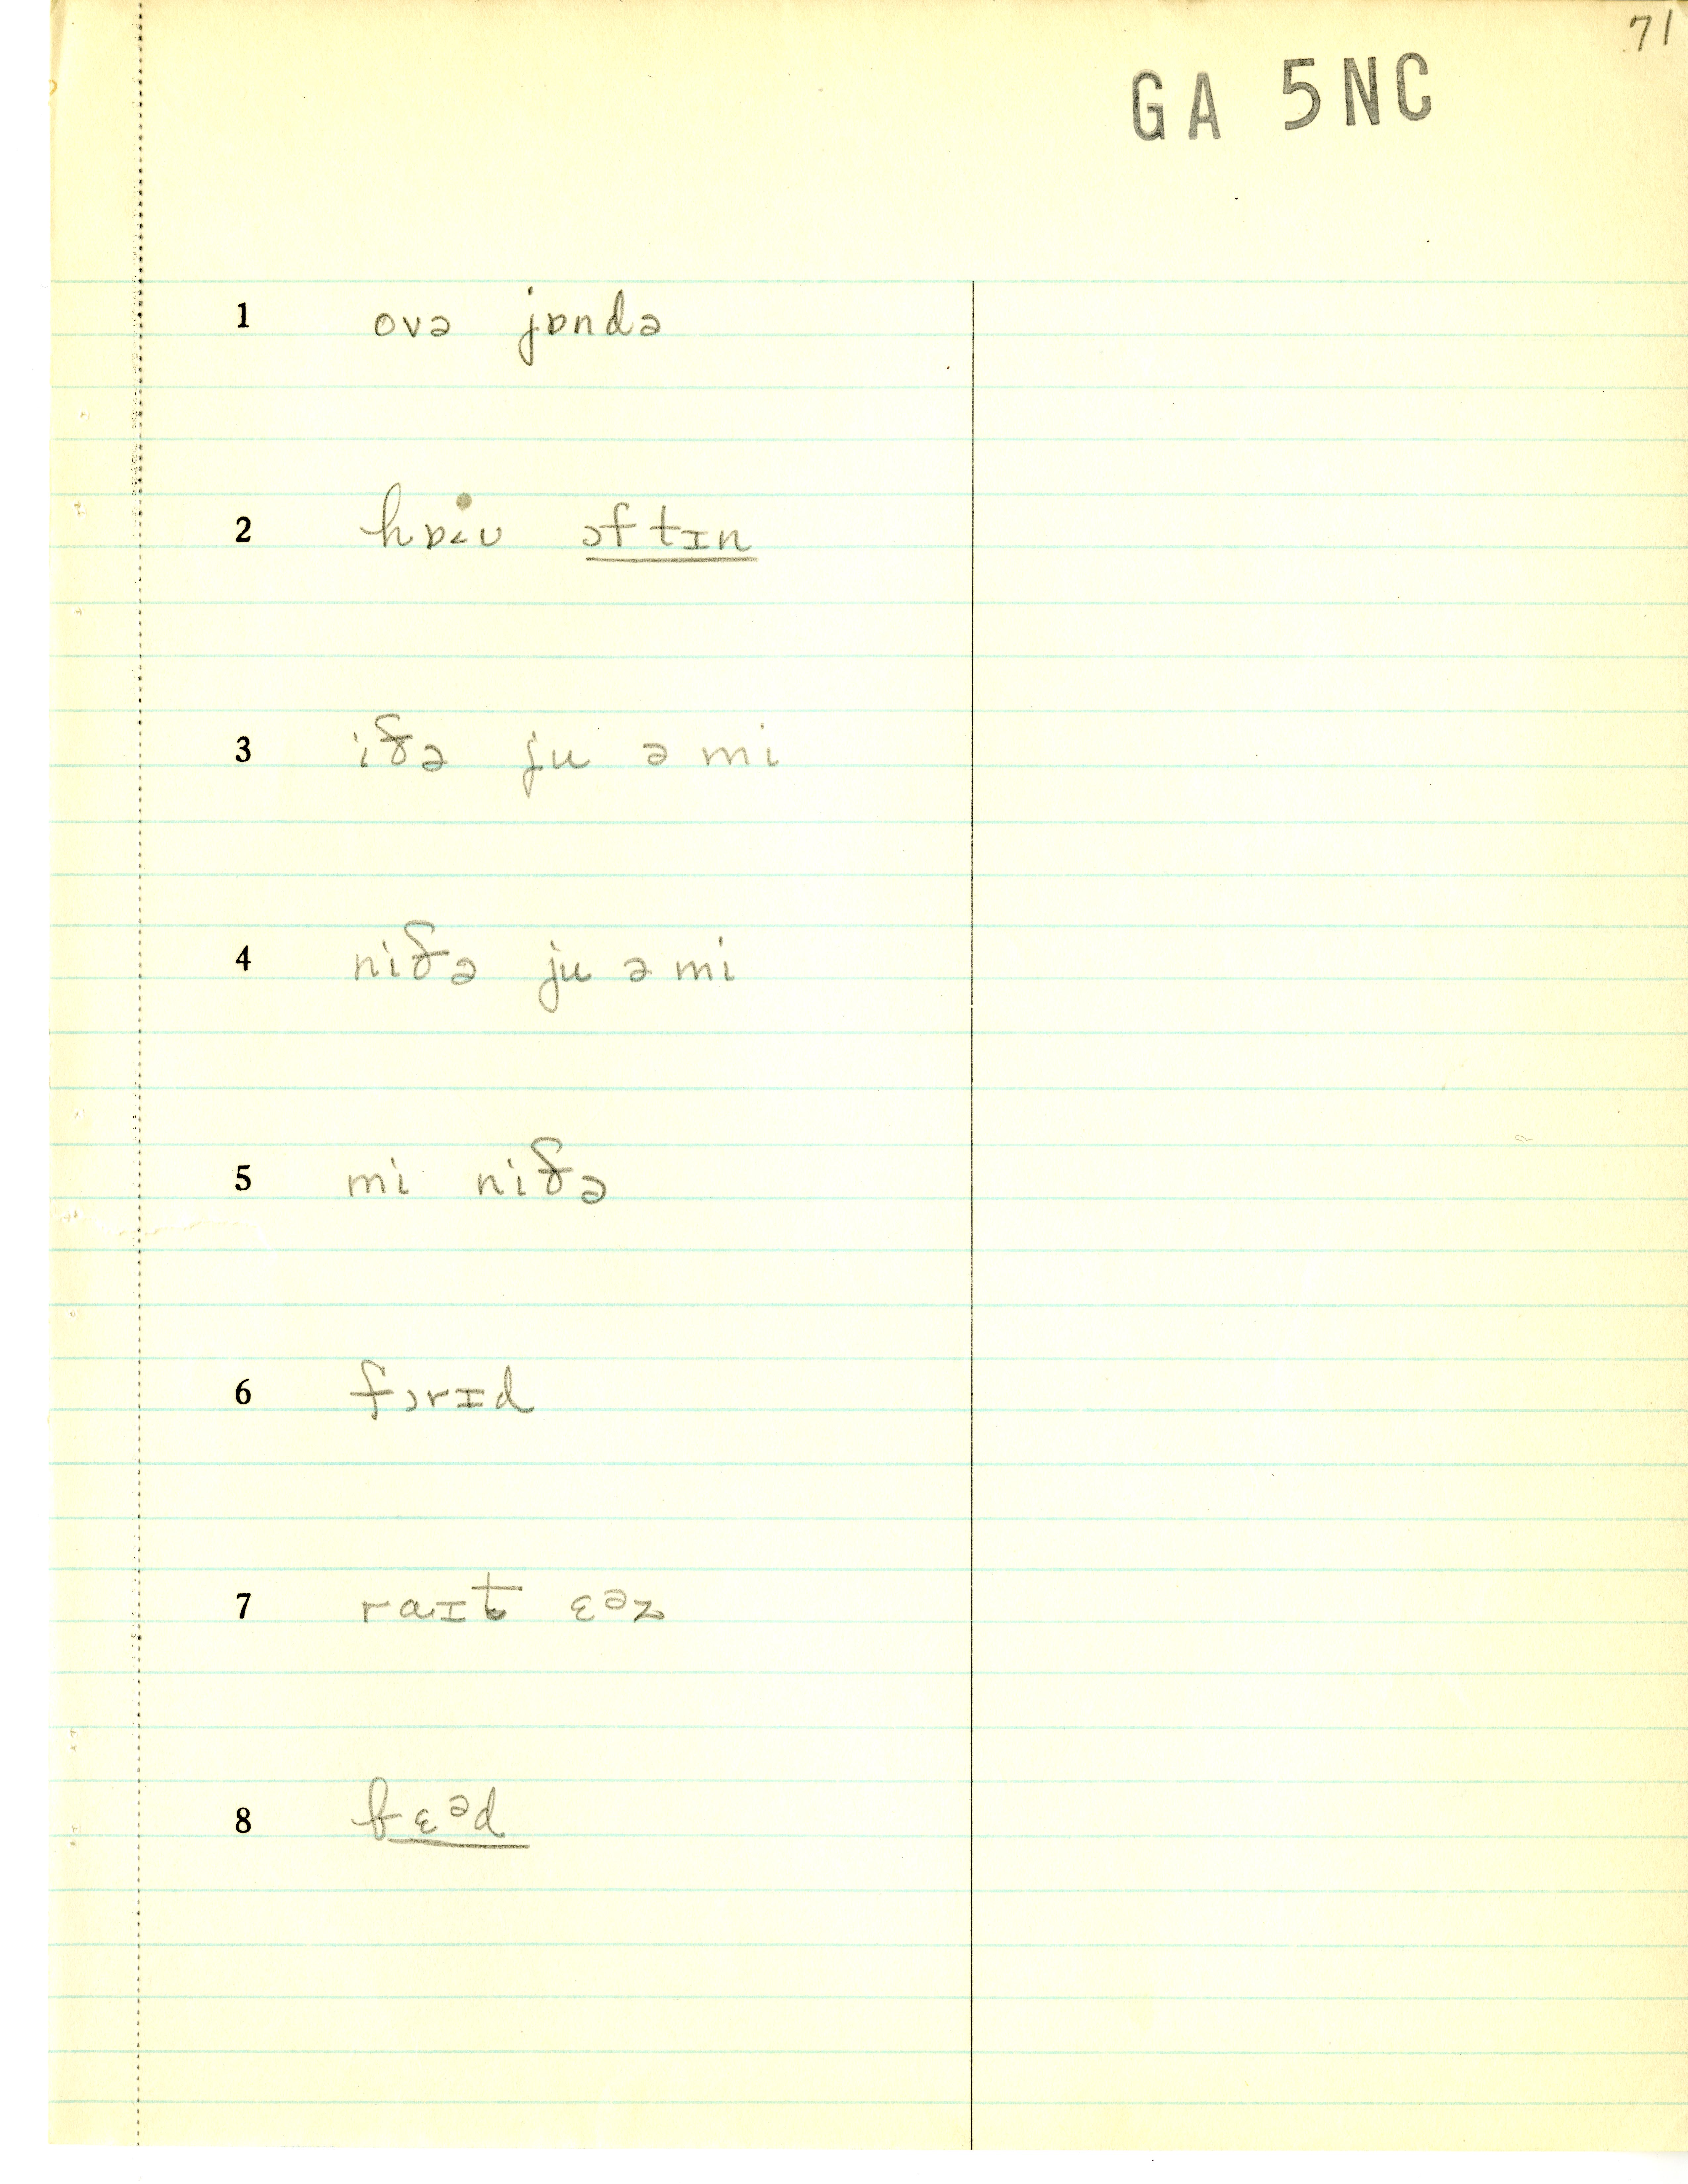 71
GA 5NC
1 ovə jɒndə
2 hɒ˂ʊ ɔftɪn
3 iðə ju ə mi
4 niðə ju ə mi
5 mi niðə
6 fɔrɪd
7 raɪt ɛəz
8 fɛᵊd